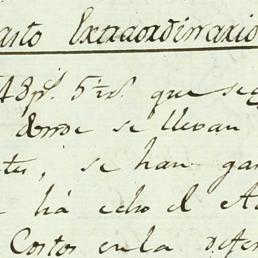 asto Extraordinario
48 p.s 5 r.s que se
donde se llevan
tes, se han gas
ha echo el A
Costos en la defen